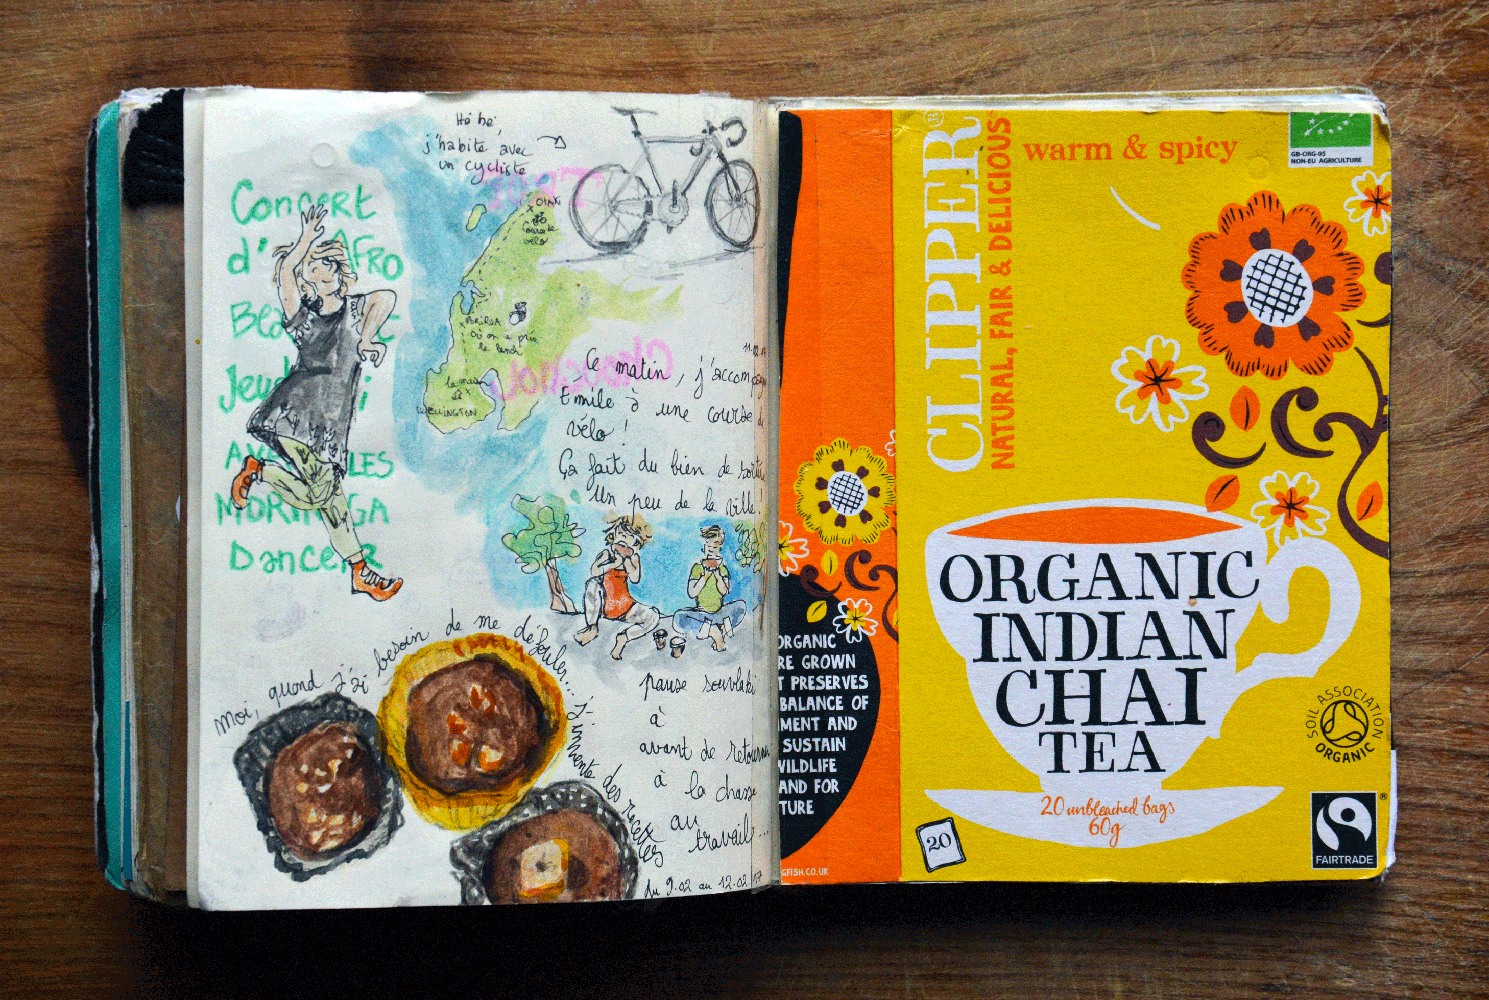 Hé hé,
j'habite avec
un cycliste
Concert
d' AFRO
Bea
Jeu i
AV LES
MORINGA
Dance
OTAKI
course de
vélo
PORIRUA
où on a pris
le lunch
la maison
WELLINGTON
11.02.17
Ce matin, j'accompagne
Emile à une course de
vélo !
Ça fait du bien de sortir
un peu de la ville !
Moi, quand j'ai besoin de me défouler... j'invente des recettes
pause souvlaki
à
avant de retourner
à la chasse
au
travail...
du 9.02 au 12.02 17
CLIPPER®
NATURAL, FAIR & DELICIOUS
warm & spicy
GB-ORG-05
NON-EU AGRICULTURE
ORGANIC
INDIAN
CHAI
TEA
20 unbleached bags
60g
20
SOIL ASSOCIATION
ORGANIC
FAIRTRADE
®
ORGANIC
RE GROWN
T PRESERVES
BALANCE OF
MENT AND
SUSTAIN
WILDLIFE
AND FOR
TURE
GFISH.CO.UK